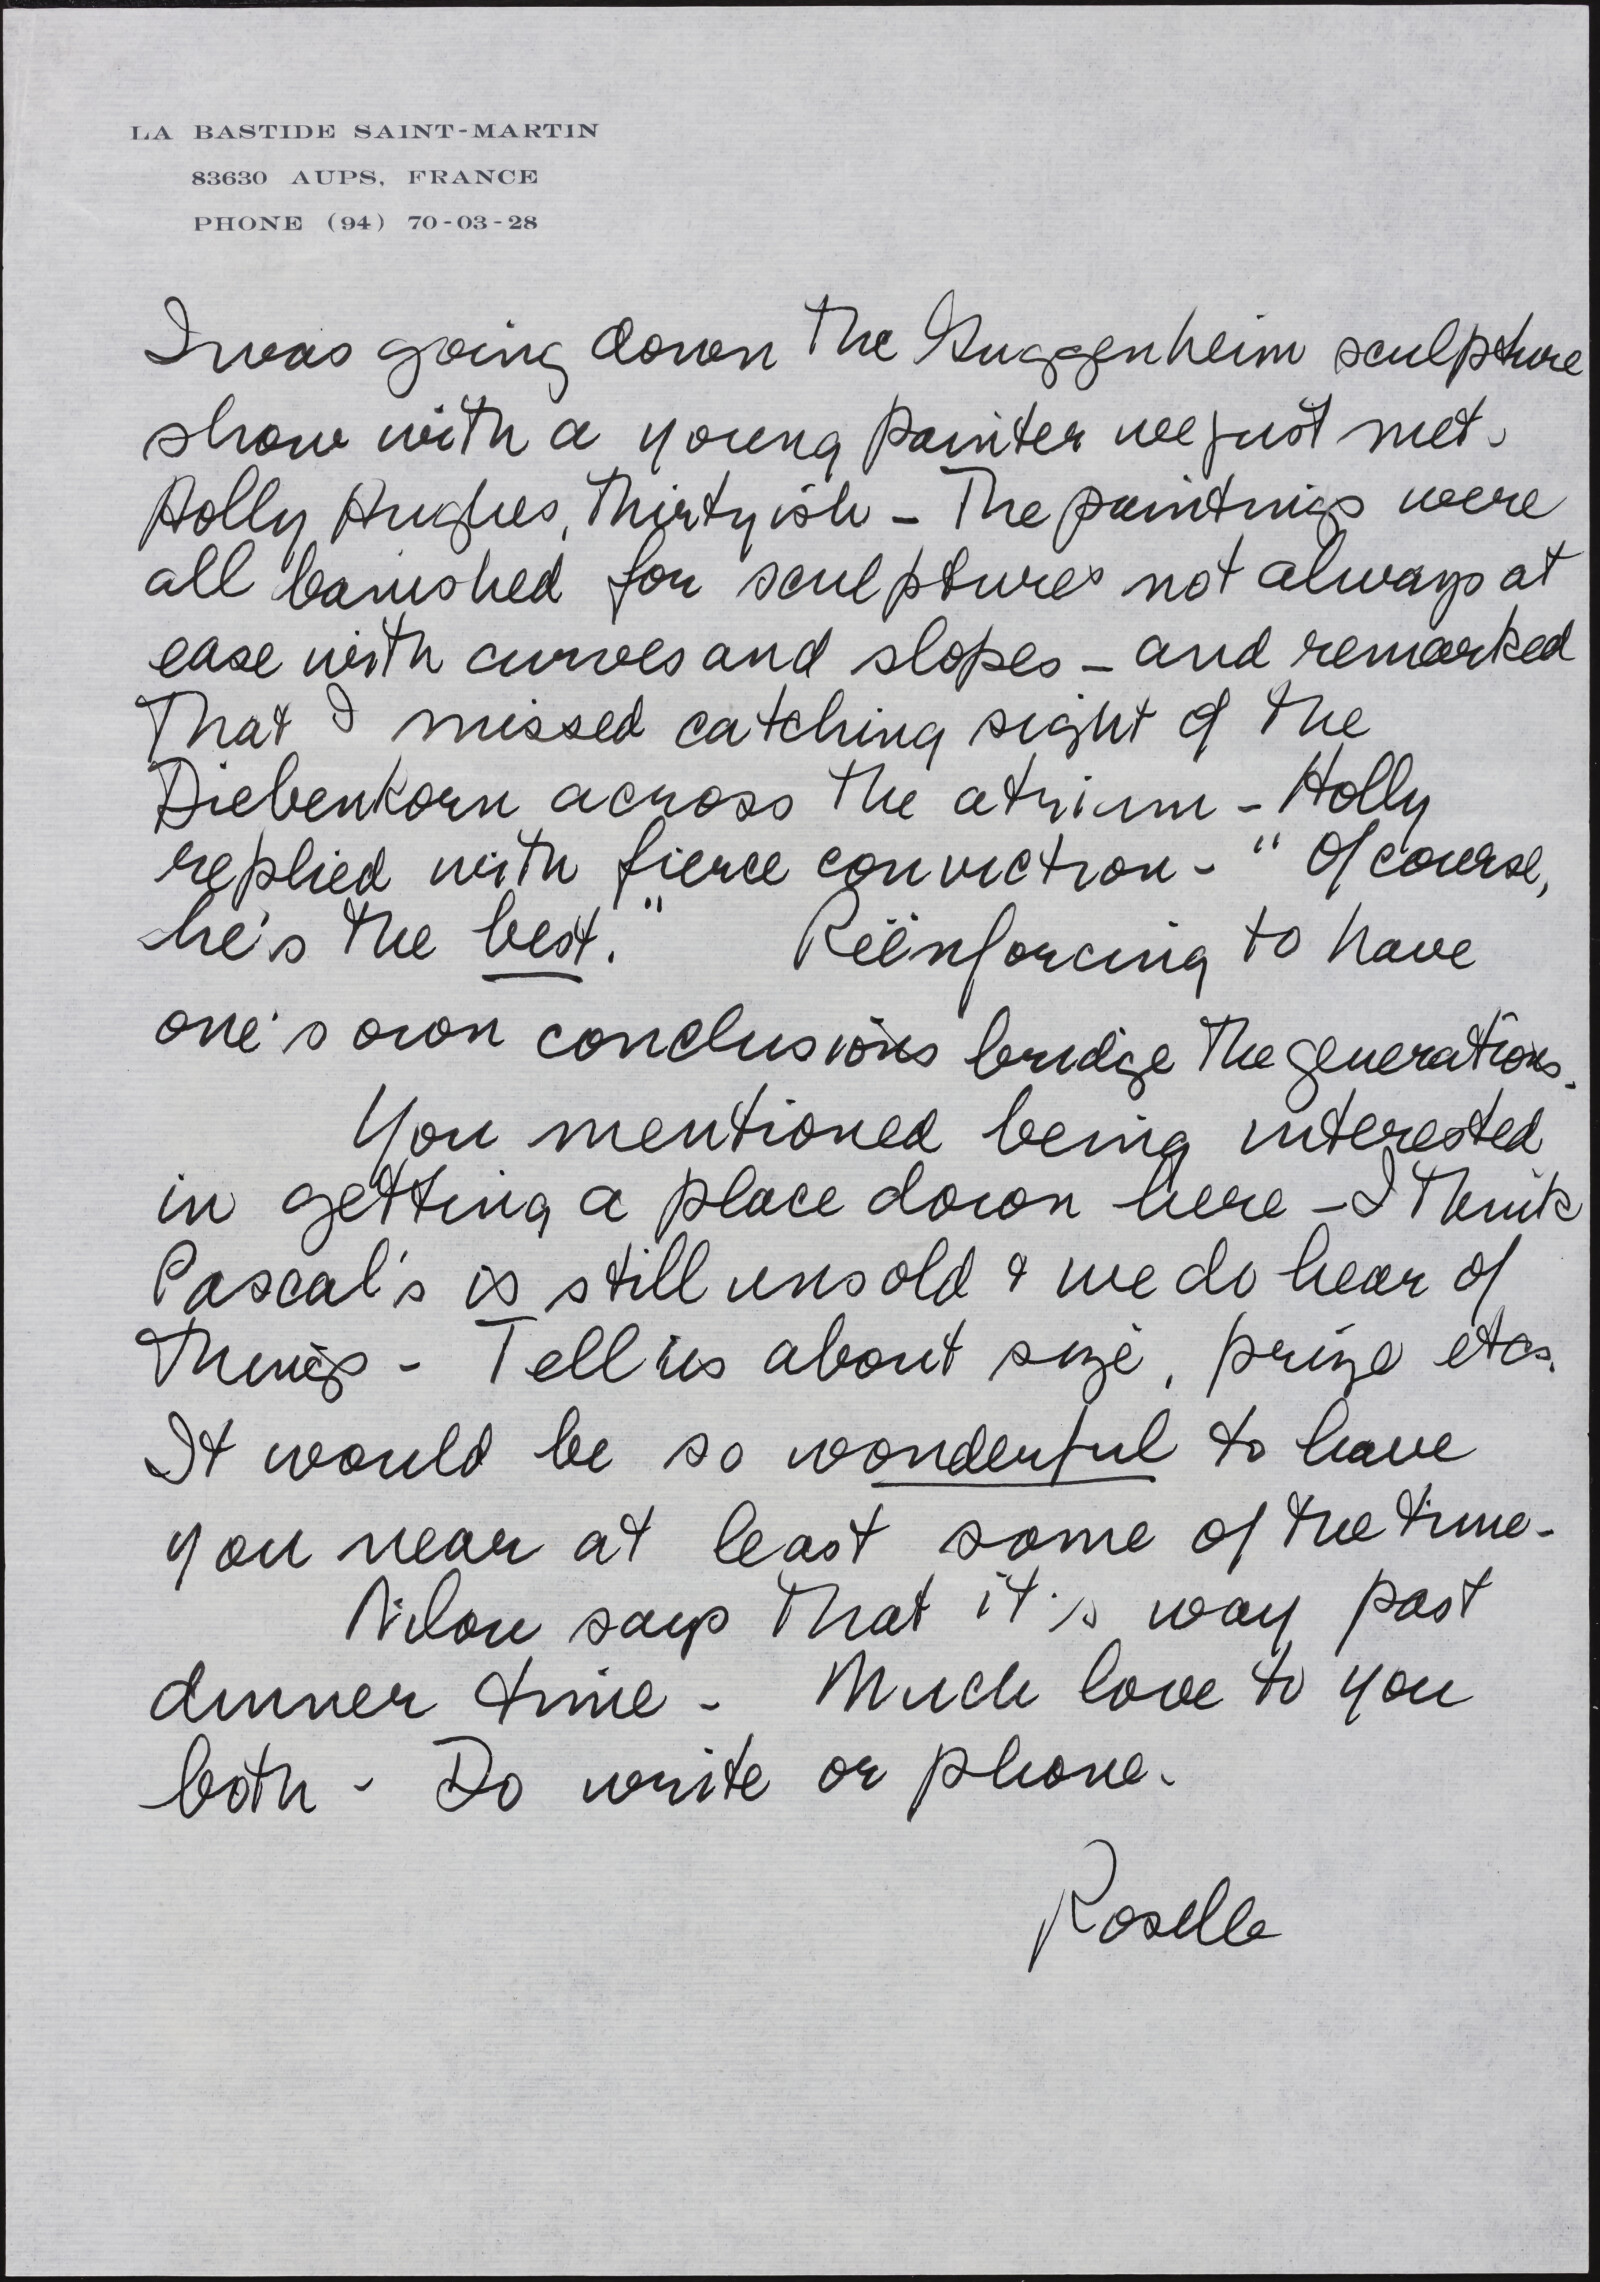 LA BASTIDE SAINT-MARTIN
83630 AUPS, FRANCE
PHONE (94) 70-03-28
I was going down the Guggenheim sculpture
show with a young painter we just met.
Holly Hughes, thirtyish - The paintings were
all banished for sculptures not always at
ease with curves and slopes - and remarked
that I missed catching sight of the
Diebenkorn across the atrium - Holly
replied with fierce conviction - "Of course,
he's the best." Reënforcing to have
one's own conclusions bridge the generations.
You mentioned being interested
in getting a place down here - I think
Pascal's is still unsold & we do hear of
things - Tell us about size, prize etcs.
It would be so wonderful to have
you near at least some of the time -
Nilou says that it's way past
dinner time - Much love to you
both - Do write or phone.
Roselle